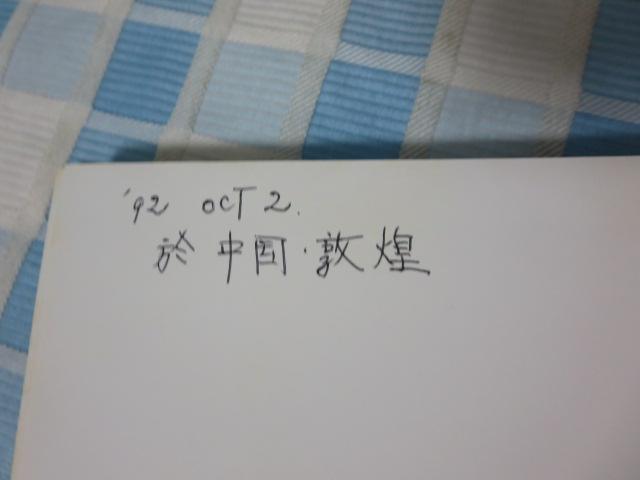 '92 OCT 2.
於 中国・敦煌